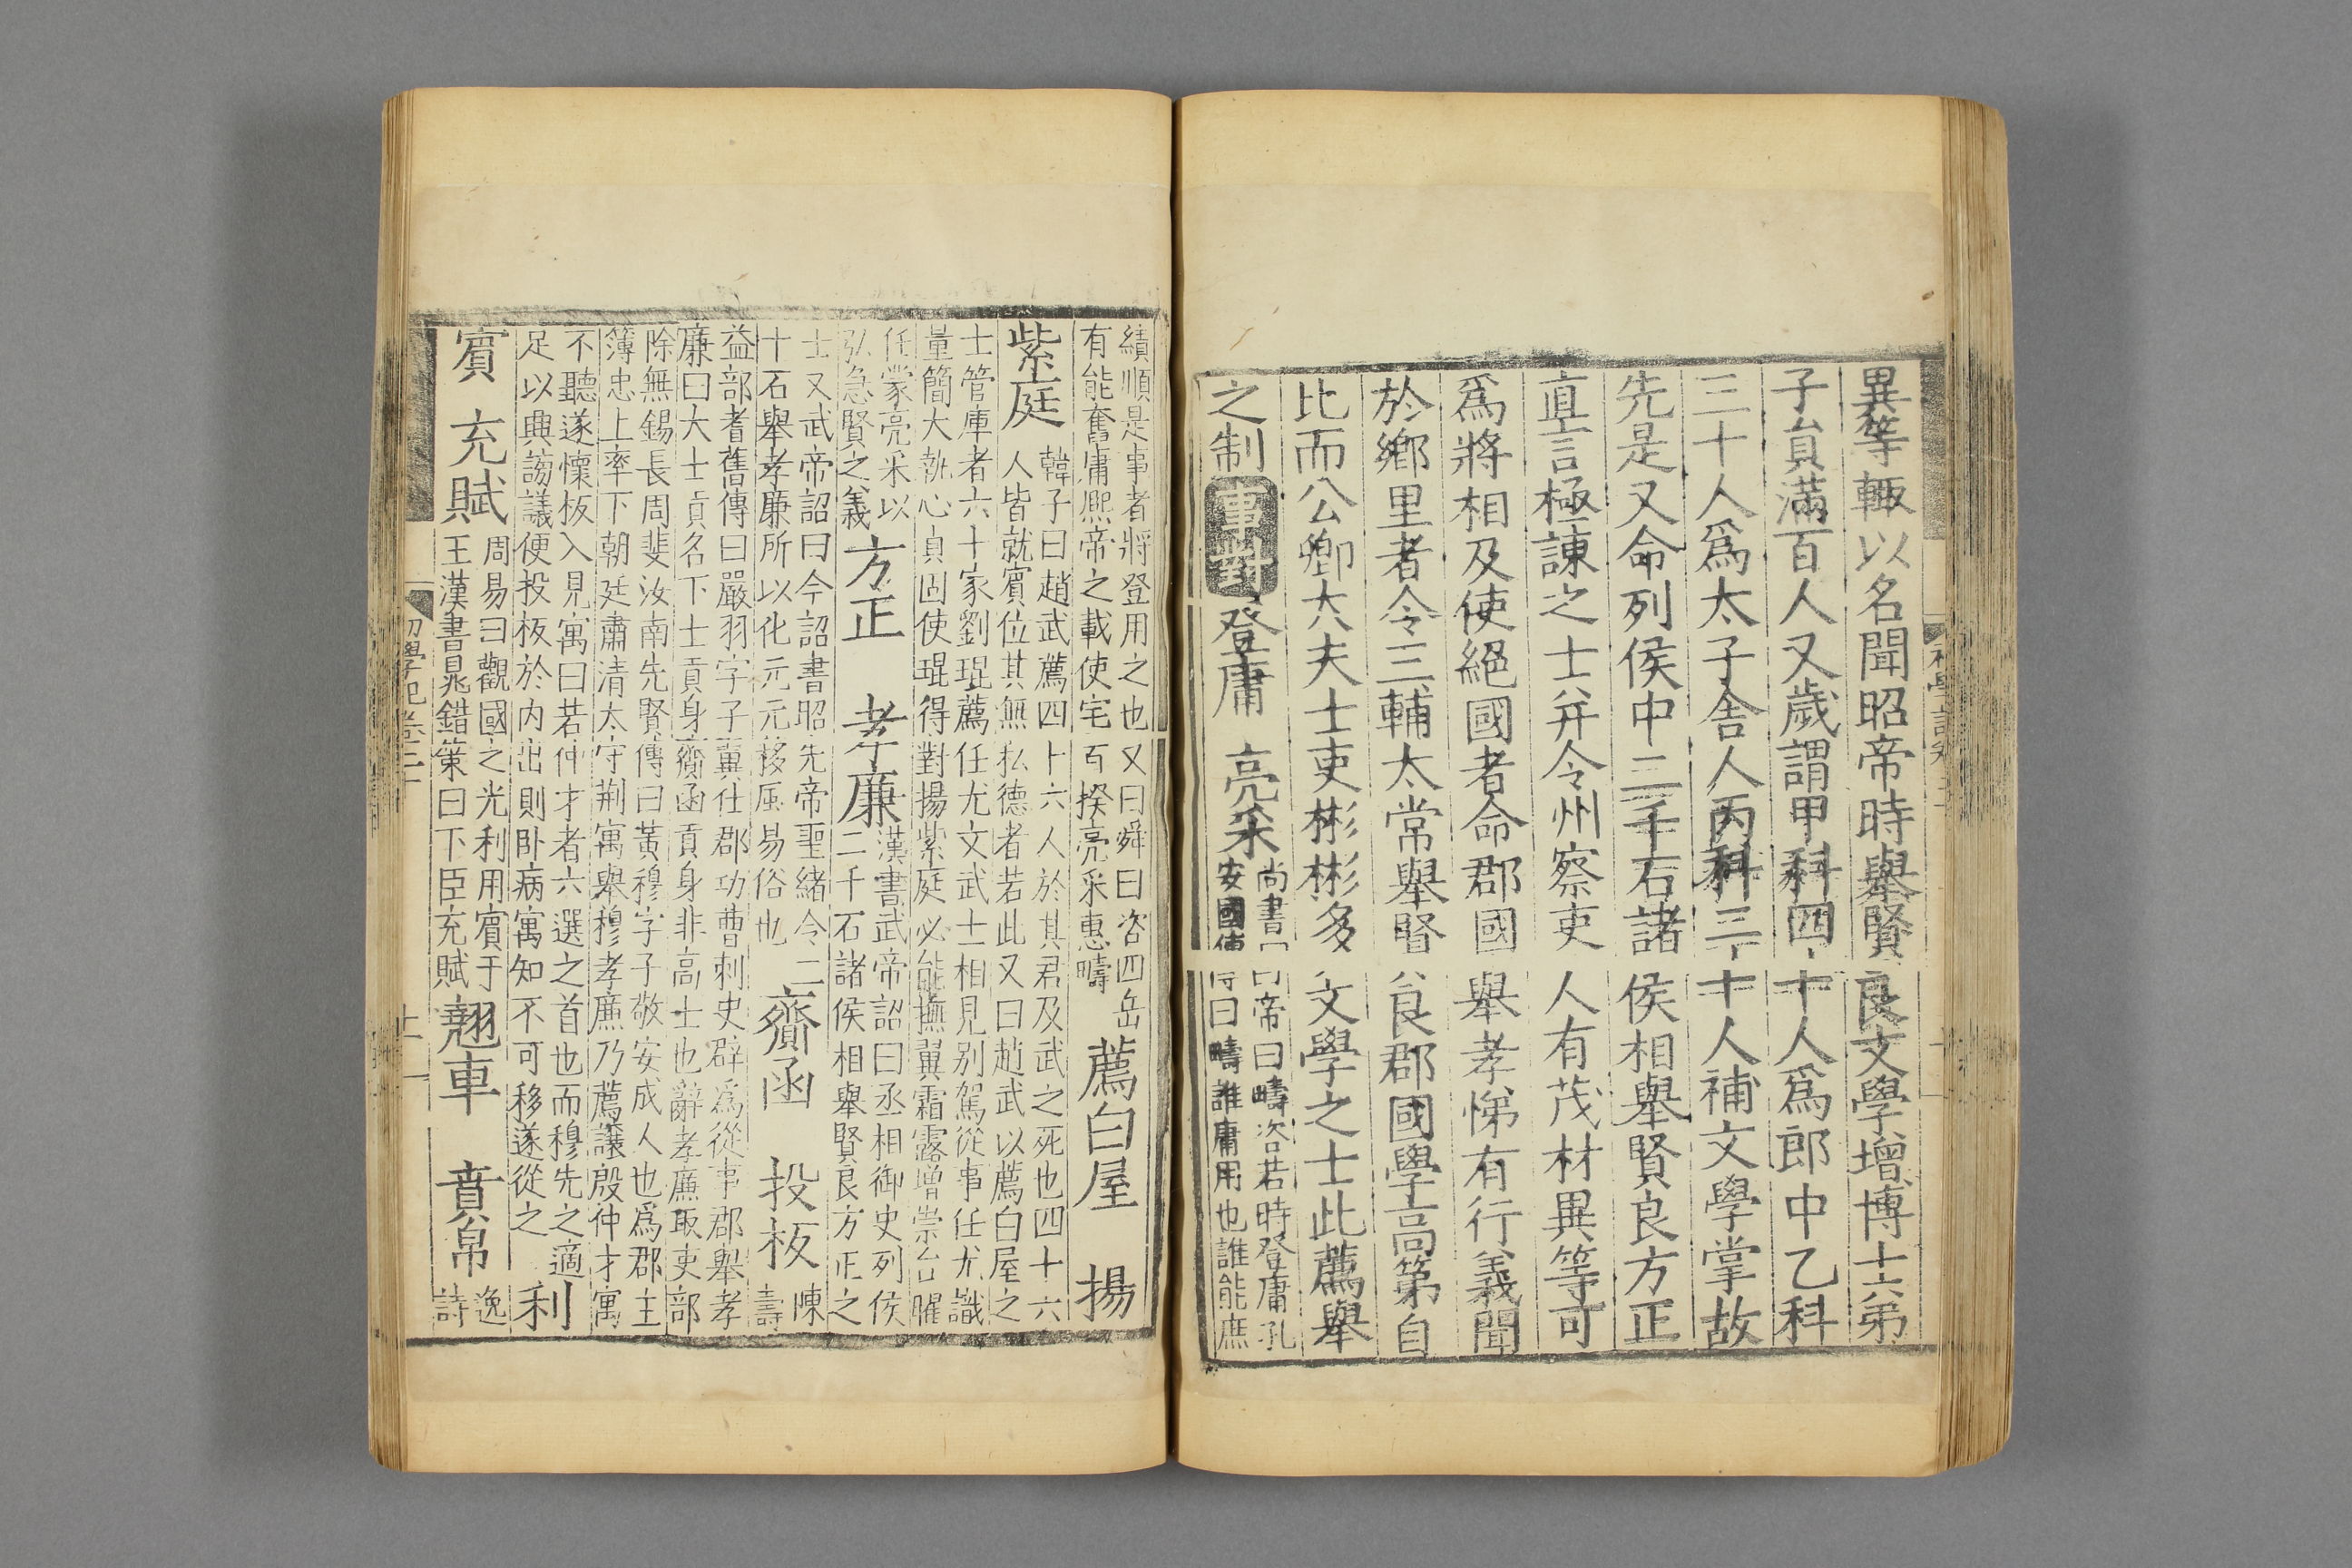 異等輙以名聞昭帝時舉賢良文學增博士弟
子員滿百人又歲謂甲科四十人爲郎中乙科
三十人爲太子舍人丙科三十人補文學掌故
先是又命列侯中二千石諸侯相舉賢良方正
直言極諫之士并令州察吏人有茂材異等可
爲將相及使絕國者命郡國舉孝悌有行義聞
於鄉里者令三輔太常舉賢良郡國學高第自
比而公卿大夫士吏彬彬多文學之士此薦舉
之制
事對
登庸 亮采
尚書曰帝曰疇咨若時登庸孔
安國傳曰疇誰庸用也誰能庶
績順是事者將登用之也又曰舜曰咨四岳
有能奮庸熙帝之載使宅百揆亮采惠疇
薦白屋 揚
紫庭
韓子曰趙武薦四十六人於其君及武之死也四十六
人皆就賓位其無私德者若此又曰趙武以薦白屋之
士管庫者六十家劉琨薦任尤文武士相見別駕從事任尤識
量簡大執心貞固使琨得對揚紫庭必能撫翼霜露增崇台曜
任蒙亮采以
弘急賢之義
方正 孝廉
漢書武帝詔曰丞相御史列侯
二千石諸侯相舉賢良方正之
士又武帝詔曰今詔書昭先帝聖緒令二
十石舉孝廉所以化元元移風易俗也
齎函 投板
陳
壽
益部耆舊傳曰嚴羽字子翼仕郡功曹刺史辟爲從事郡舉孝
廉曰大士貢名下士貢身齎函貢身非高士也辭孝廉取吏部
除無錫長周斐汝南先賢傳曰黃穆字子敬安成人也爲郡主
簿忠上率下朝廷肅清太守荆寓舉穆孝廉乃薦讓殷仲才寓
不聽遂懷板入見寓曰若仲才者六選之首也而穆先之適
足以興謗議便投板於内出則卧病寓知不可移遂從之
利
賓 充賦
周易曰觀國之光利用賓于
王漢書晁錯策曰下臣充賦
翹車 賁帛
逸
詩
初學記卷二十